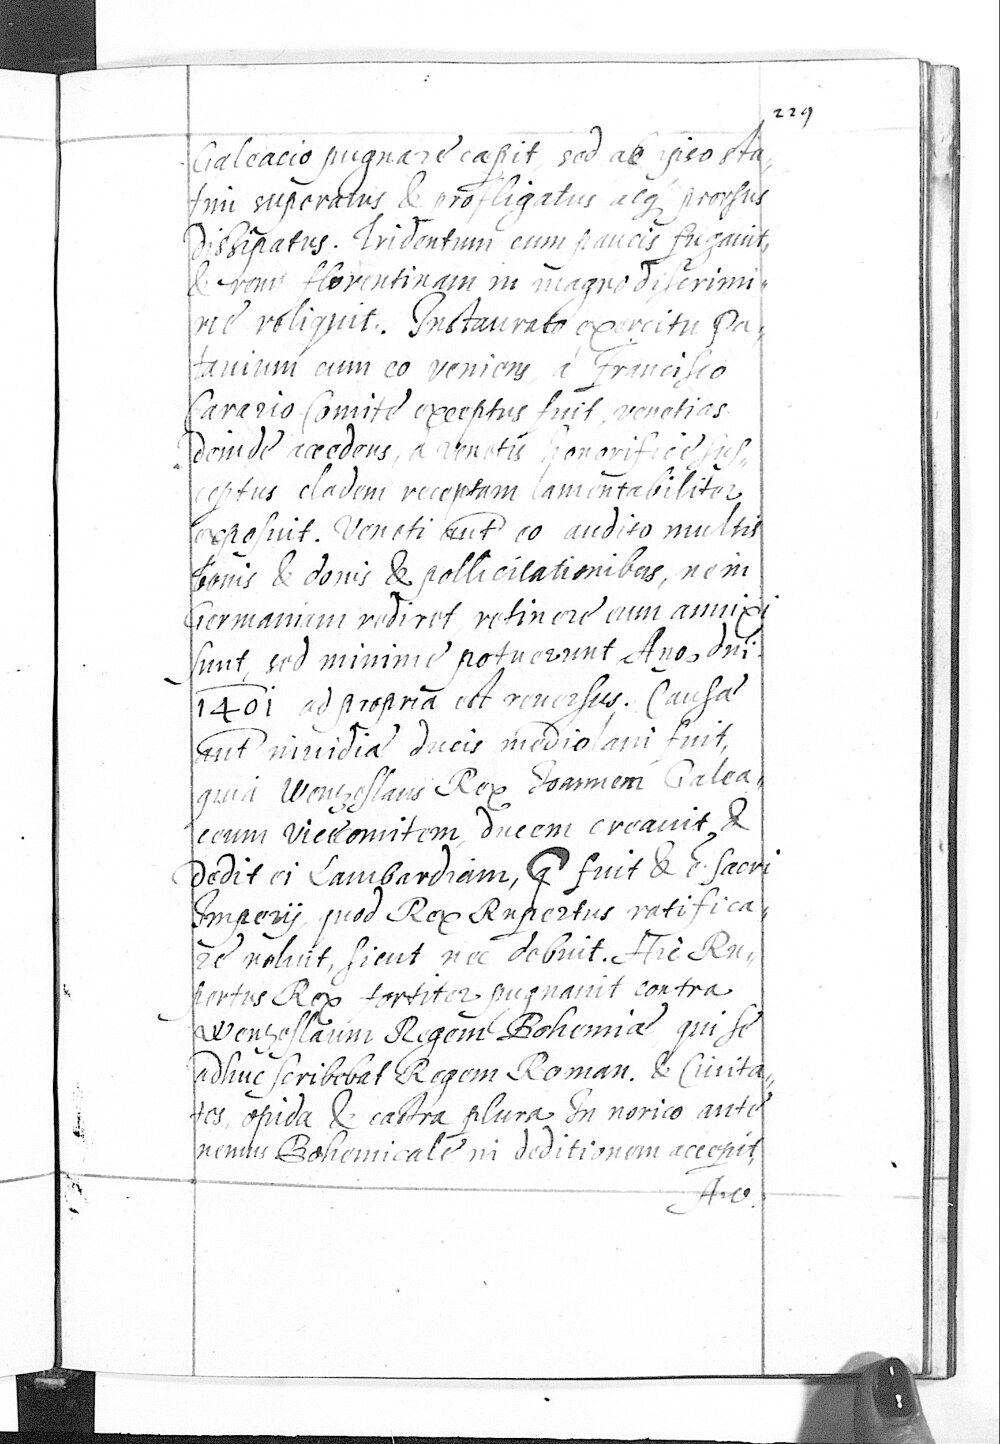 229
Galeacio pugnare cæpit, sed ab ipso sta„
tim superatus & profligatus acq prorsus
dissipatus. Tridentum cum paucis fugauit,
& rem florentinam in magno discrimi„
ne reliquit. Instaurato exercitu Pa„
tauium cum eo veniens, á Francisco
Carario Comite exceptus fuit, venetias
deinde accedens, a venetis honorifice sus„
ceptus cladem receptam lamentabiliter
exposuit. Veneti aut eo audito multis
bonis & donis & pollicitationibus, ne in
Germaniam rediret retinere eum annixi
sunt, sed minime potuerunt Ano dni.
1401 ad propria est reuersus. Causa
aut inuidiæ ducis mediolani fuit,
quia Wentzeslaus Rex Ioannem Galea„
ceum Vicecomitem, ducem creauit, &
dedit ei Lambardiam, q fuit & e sacri
Imperij, quod Rex Rupertus ratifica„
re noluit, sicut nec debuit. Hic Ru„
pertus Rex fortiter pugnauit contra
Wentzeslaum Regem Bohemiæ, qui se
adhuc scribebat Regem Roman. & Ciuita„
tes, opida & castra plura In norico ante
nemus Bohemicale in deditionem accepit,